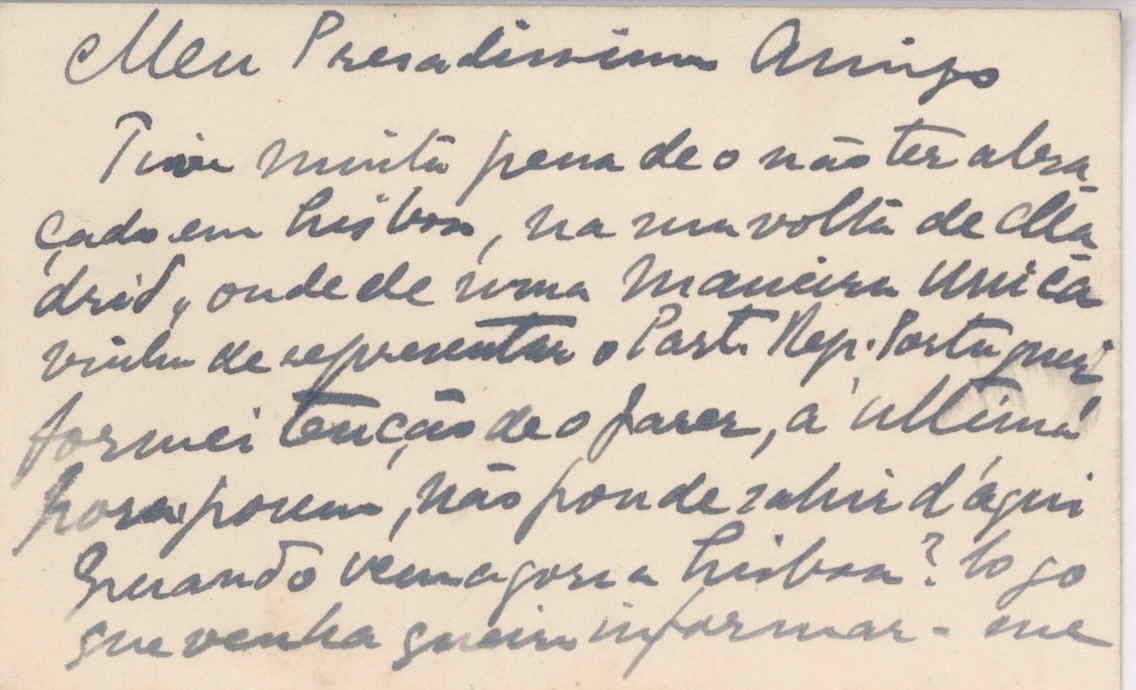 Meu Presadissimo Amigo
Tive muita pena de o não ter abra-
çado em Lisboa, na sua volta de Ma
drid, onde de uma maneira unica
vinha de representar o Part. Rep. Portuguez
formei tenção de o fazer, á ultima
hora porem, não poude sahir d'aqui
Quando vem agora a Lisboa? logo
que venha queira informar-me